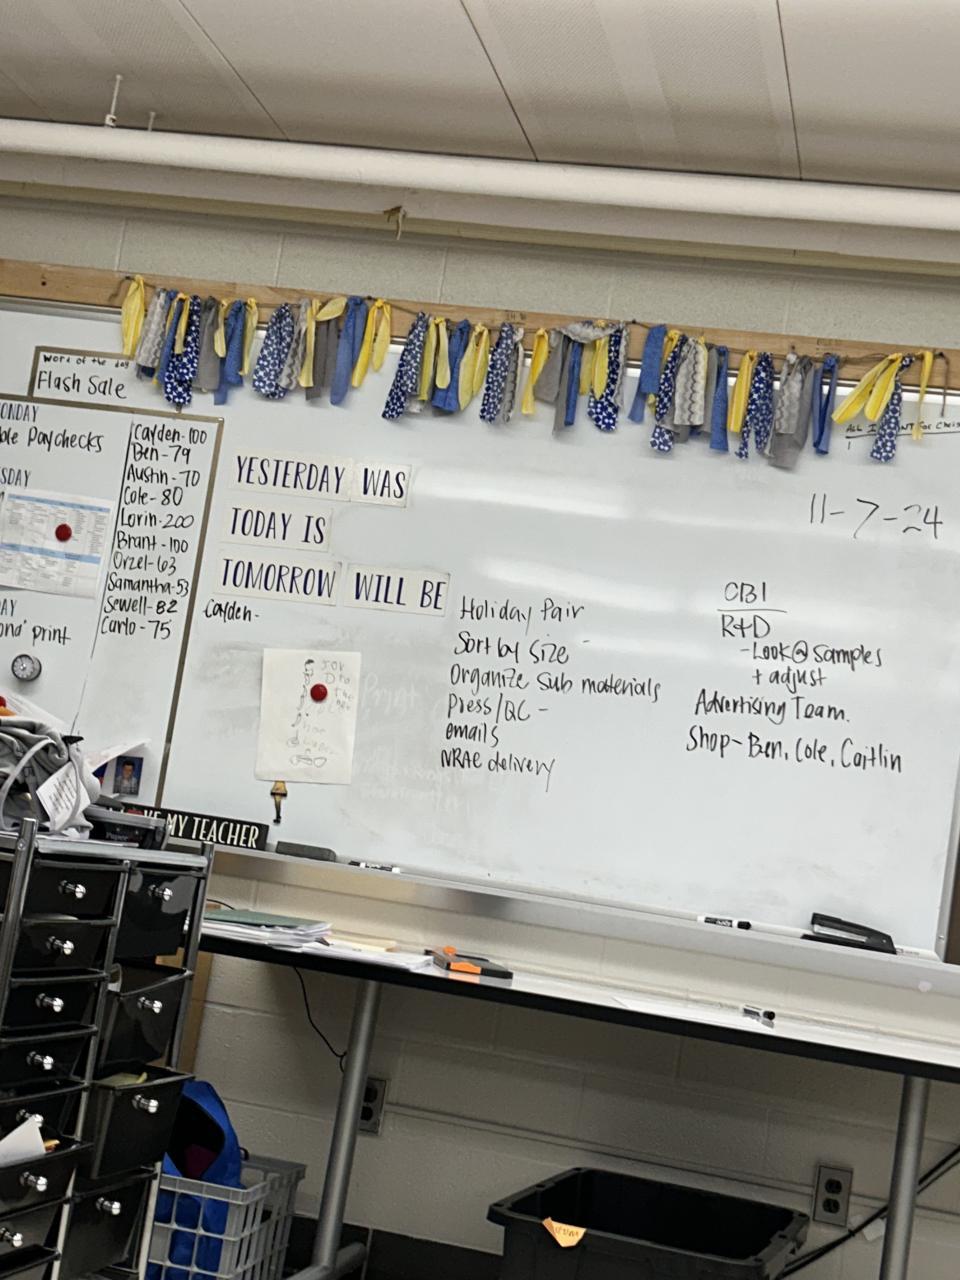 Word of the day
Flash Sale
ONDAY
ble Paychecks
SDAY
AY
ond' print
Cayden-100
Ben-79
Austin-70
Cole-80
Lorin-200
Brant-100
Orzel-63
Samantha-53
Sewell-82
Carlo-75
YESTERDAY WAS
TODAY IS
TOMORROW WILL BE
Cayden-
Holiday fair
Sort by size -
Organize Sub materials
Press/QC -
emails
NRAE delivery
11-7-24
CBI
R+D
-Look@ samples
+ adjust
Advertising Team.
Shop-Ben, Cole, Caitlin
MY TEACHER